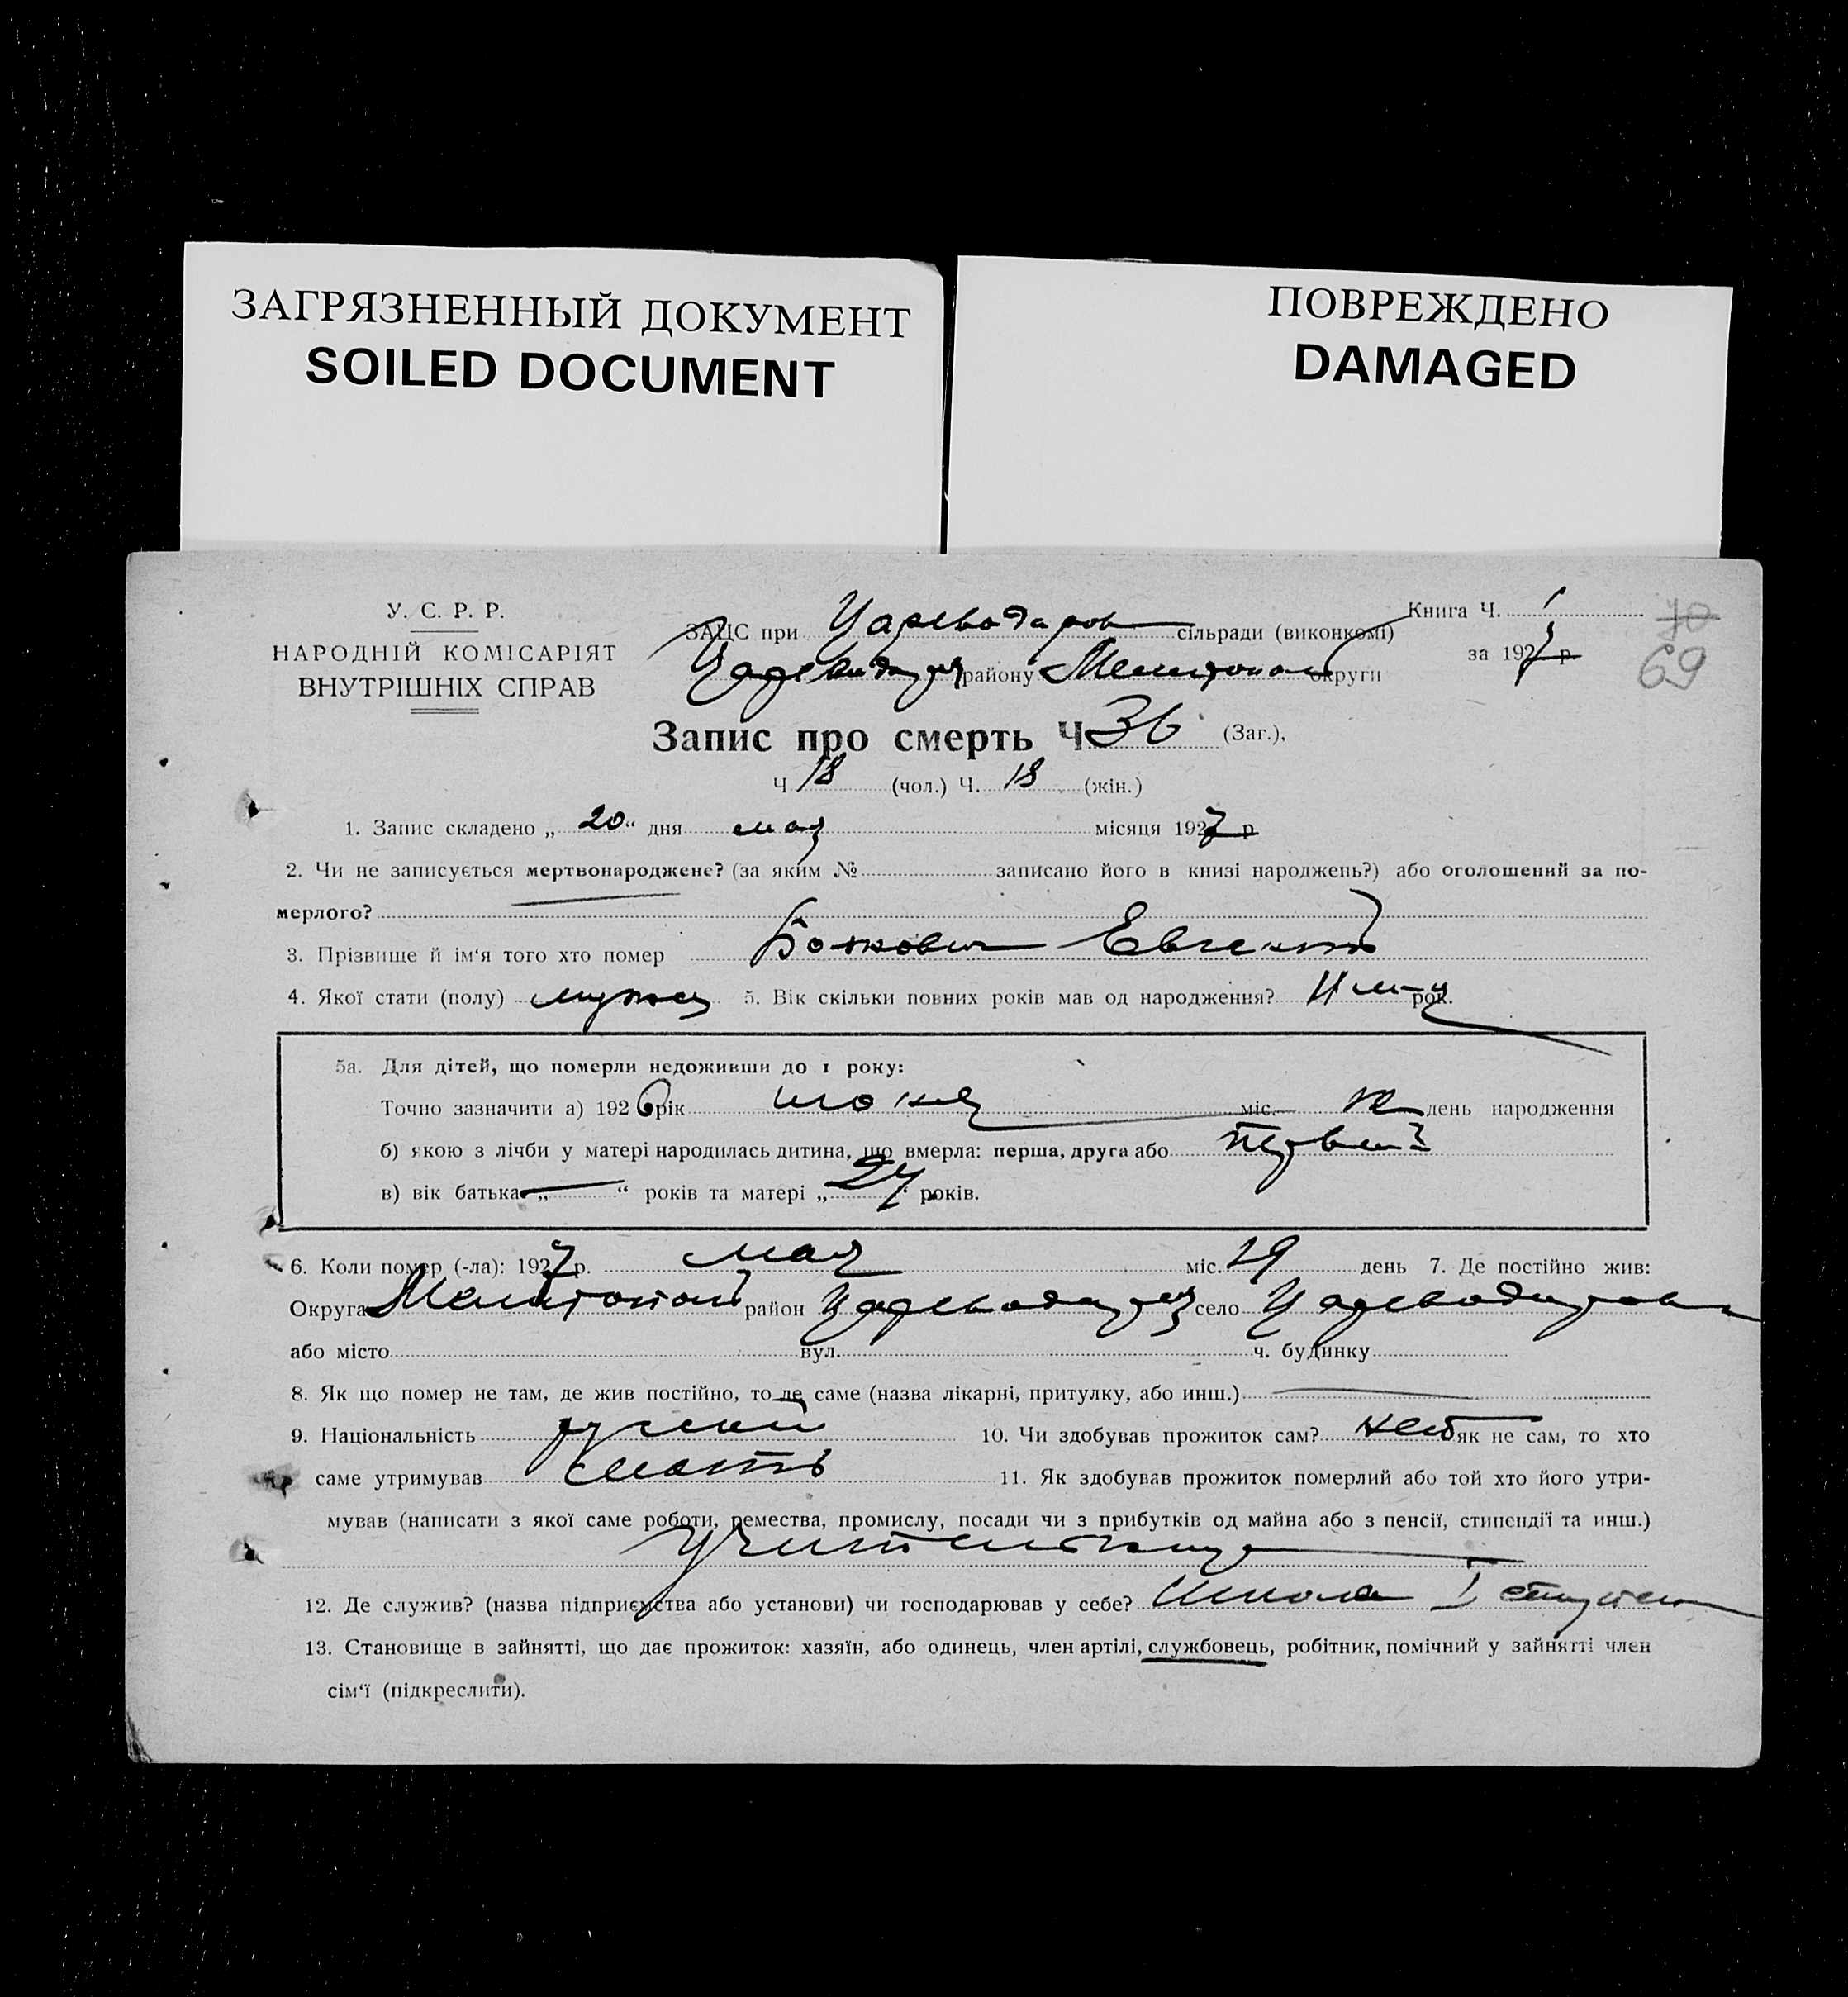 ЗАГРЯЗНЕННЫЙ ДОКУМЕНТ
SOILED DOCUMENT
ПОВРЕЖДЕНО
DAMAGED
У. С. Р. Р.
НАРОДНІЙ КОМІСАРІЯТ
ВНУТРІШНІХ СПРАВ
ЗАЦС при Цареводаров сільради (виконкомі)
району Мелитопол округи
Книга Ч. 1
за 1927 р.
70
69
Запис про смерть Ч 36 (Заг.),
Ч 18 (чол.) Ч. 18 (жін.)
1. Запис складено „ 20 “ дня мая місяця 1927 р
2. Чи не записується мертвонароджене? (за яким № записано його в книзі народжень?) або оголошений за по-
мерлого?
3. Прізвище й ім‘я того хто помер Божович Евгений
4. Якої стати (полу) мужск 5. Вік скільки повних років мав од народження? 11 м-ц рок.
5а. Для дітей, що померли недоживши до 1 року:
Точно зазначити а) 1926 рік июня міс. день народження
б) якою з лічби у матері народилась дитина, що вмерла: перша, друга або первый
в) вік батька „ “ років та матері „ 24 “ років.
6. Коли помер (-ла): 1927 р. мая міс. 19 день 7. Де постійно жив:
Округа Мелитопол район Цареводар село Цареводаровка
або місто вул. ч. будинку
8. Як що помер не там, де жив постійно, то де саме (назва лікарні, притулку, або инш.)
9. Національність руский 10. Чи здобував прожиток сам? нет як не сам, то хто
саме утримував мать 11. Як здобував прожиток померлий або той хто його утри-
мував (написати з якої саме роботи, ремества, промислу, посади чи з прибутків од майна або з пенсії, стипендії та инш.)
Учительница
12. Де служив? (назва підприємства або установи) чи господарював у себе? Школа I ступени
13. Становище в зайнятті, що дає прожиток: хазяїн, або одинець, член артілі, службовець, робітник, помічний у зайнятті член
сім‘ї (підкреслити).